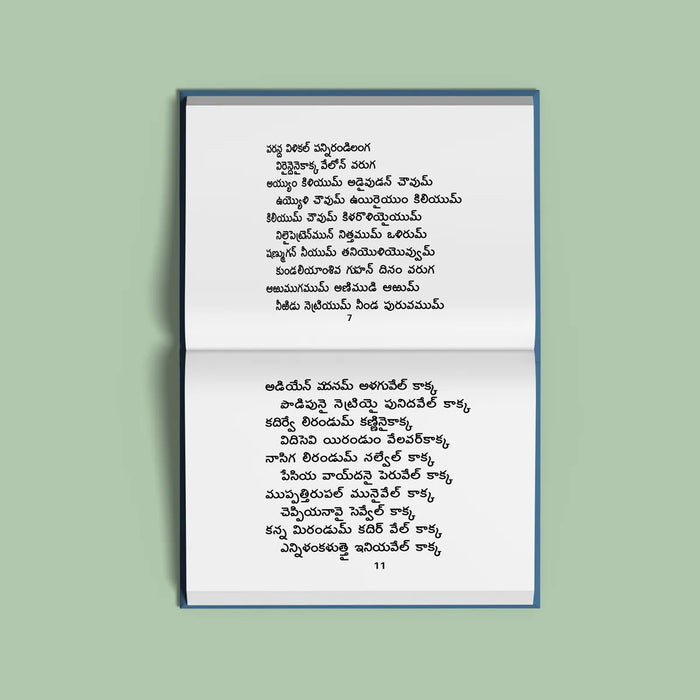 వరన్ద విళికల్ పన్నిరండిలంగ
విరైన్దెనైకాక్క వేలోన్ వరుగ
అయ్యుం కిళియుమ్ అడైవుడన్ చౌవుమ్
ఉయ్యొళి చౌవుమ్ ఉయిరైయుం కిలియుమ్
కిలియుమ్ చౌవుమ్ కిళరొళియైయుమ్
నిలైపెట్రెన్‌మున్ నిత్తముమ్ ఒళిరుమ్
షణ్ముగన్ నీయుమ్ తనియొళియొవ్వుమ్
కుండలియాంశివ గుహన్ దినం వరుగ
ఆఱుముగముమ్ అణిముడి ఆఱుమ్
నీఱిడు నెట్రియుమ్ నీండ పురువముమ్
7
అడియేన్ వదనమ్ అళగువేల్ కాక్క
పొడిపునై నెట్రియై పునిదవేల్ కాక్క
కదిర్వే లిరండుమ్ కణ్ణినైకాక్క
విదిసెవి యిరండుం వేలవర్‌కాక్క
నాసిగ లిరండుమ్ నల్వేల్ కాక్క
పేసియ వాయ్‌దనై పెరువేల్ కాక్క
ముప్పత్తిరుపల్ మునైవేల్ కాక్క
చెప్పియనావై సెవ్వేల్ కాక్క
కన్న మిరండుమ్ కదిర్ వేల్ కాక్క
ఎన్నిళంకళుత్తై ఇనియవేల్ కాక్క
11